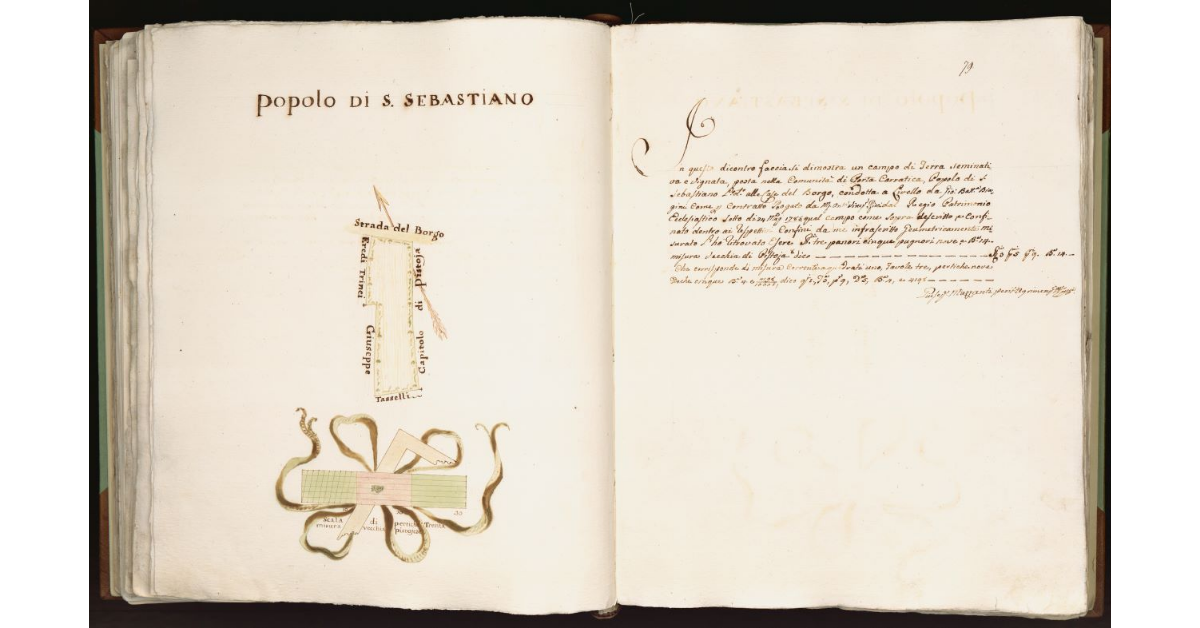 Popolo DI S. SEBASTIANO
Strada del Borgo
Eredi Trinci
Giuseppe
Capitolo di Pistoja
Tasselli
SCALA di pertiche Trenta
misura vecchia
30
79
In questo dicontro faccia si dimostra un campo di Terra seminati
va e Vignata, posta nella Comunità di Porta Carratica, Popolo di S.
Sebastiano alle Case del Borgo, condotta a Livello da Gio: Batt.
Come Contratto Rogato da Regio Patrimonio
Eclesiastico sotto di 24 qual campo come sopra descritto e Confi
nato dentro ai Rispettivi Confini da me infrascritto Geometricamente mi
surato l'ho ritrovato Essere tre panori cinque pugnori nove e 14
misura vecchia di Pistoja dico 3 5 9. 14
Che corrisponde di misura Fiorentina a Quadrati uno, Tavole tre, pertiche nove
Deche cinque dico 9,